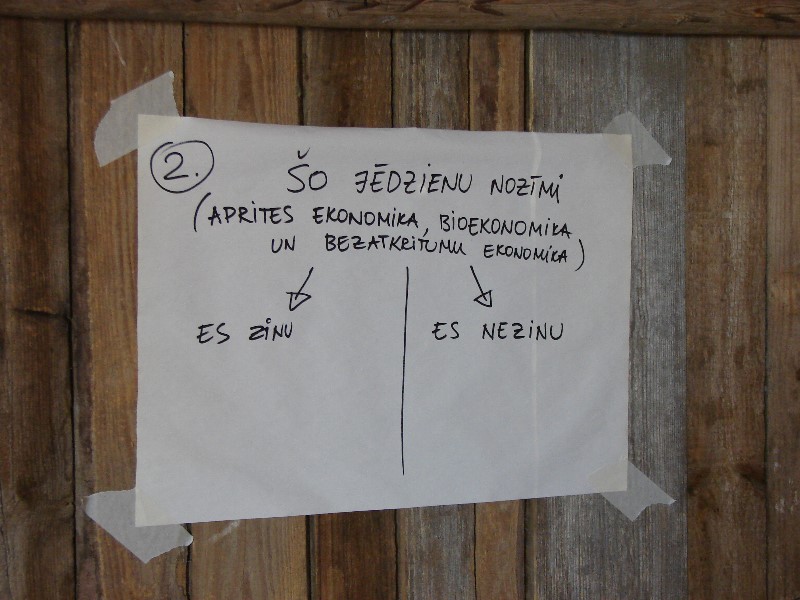 2.
ŠO JĒDZIENU NOZĪMI
(APRITES EKONOMIKA, BIOEKONOMIKA
UN BEZATKRITUMU EKONOMIKA)
ES ZINU
ES NEZINU